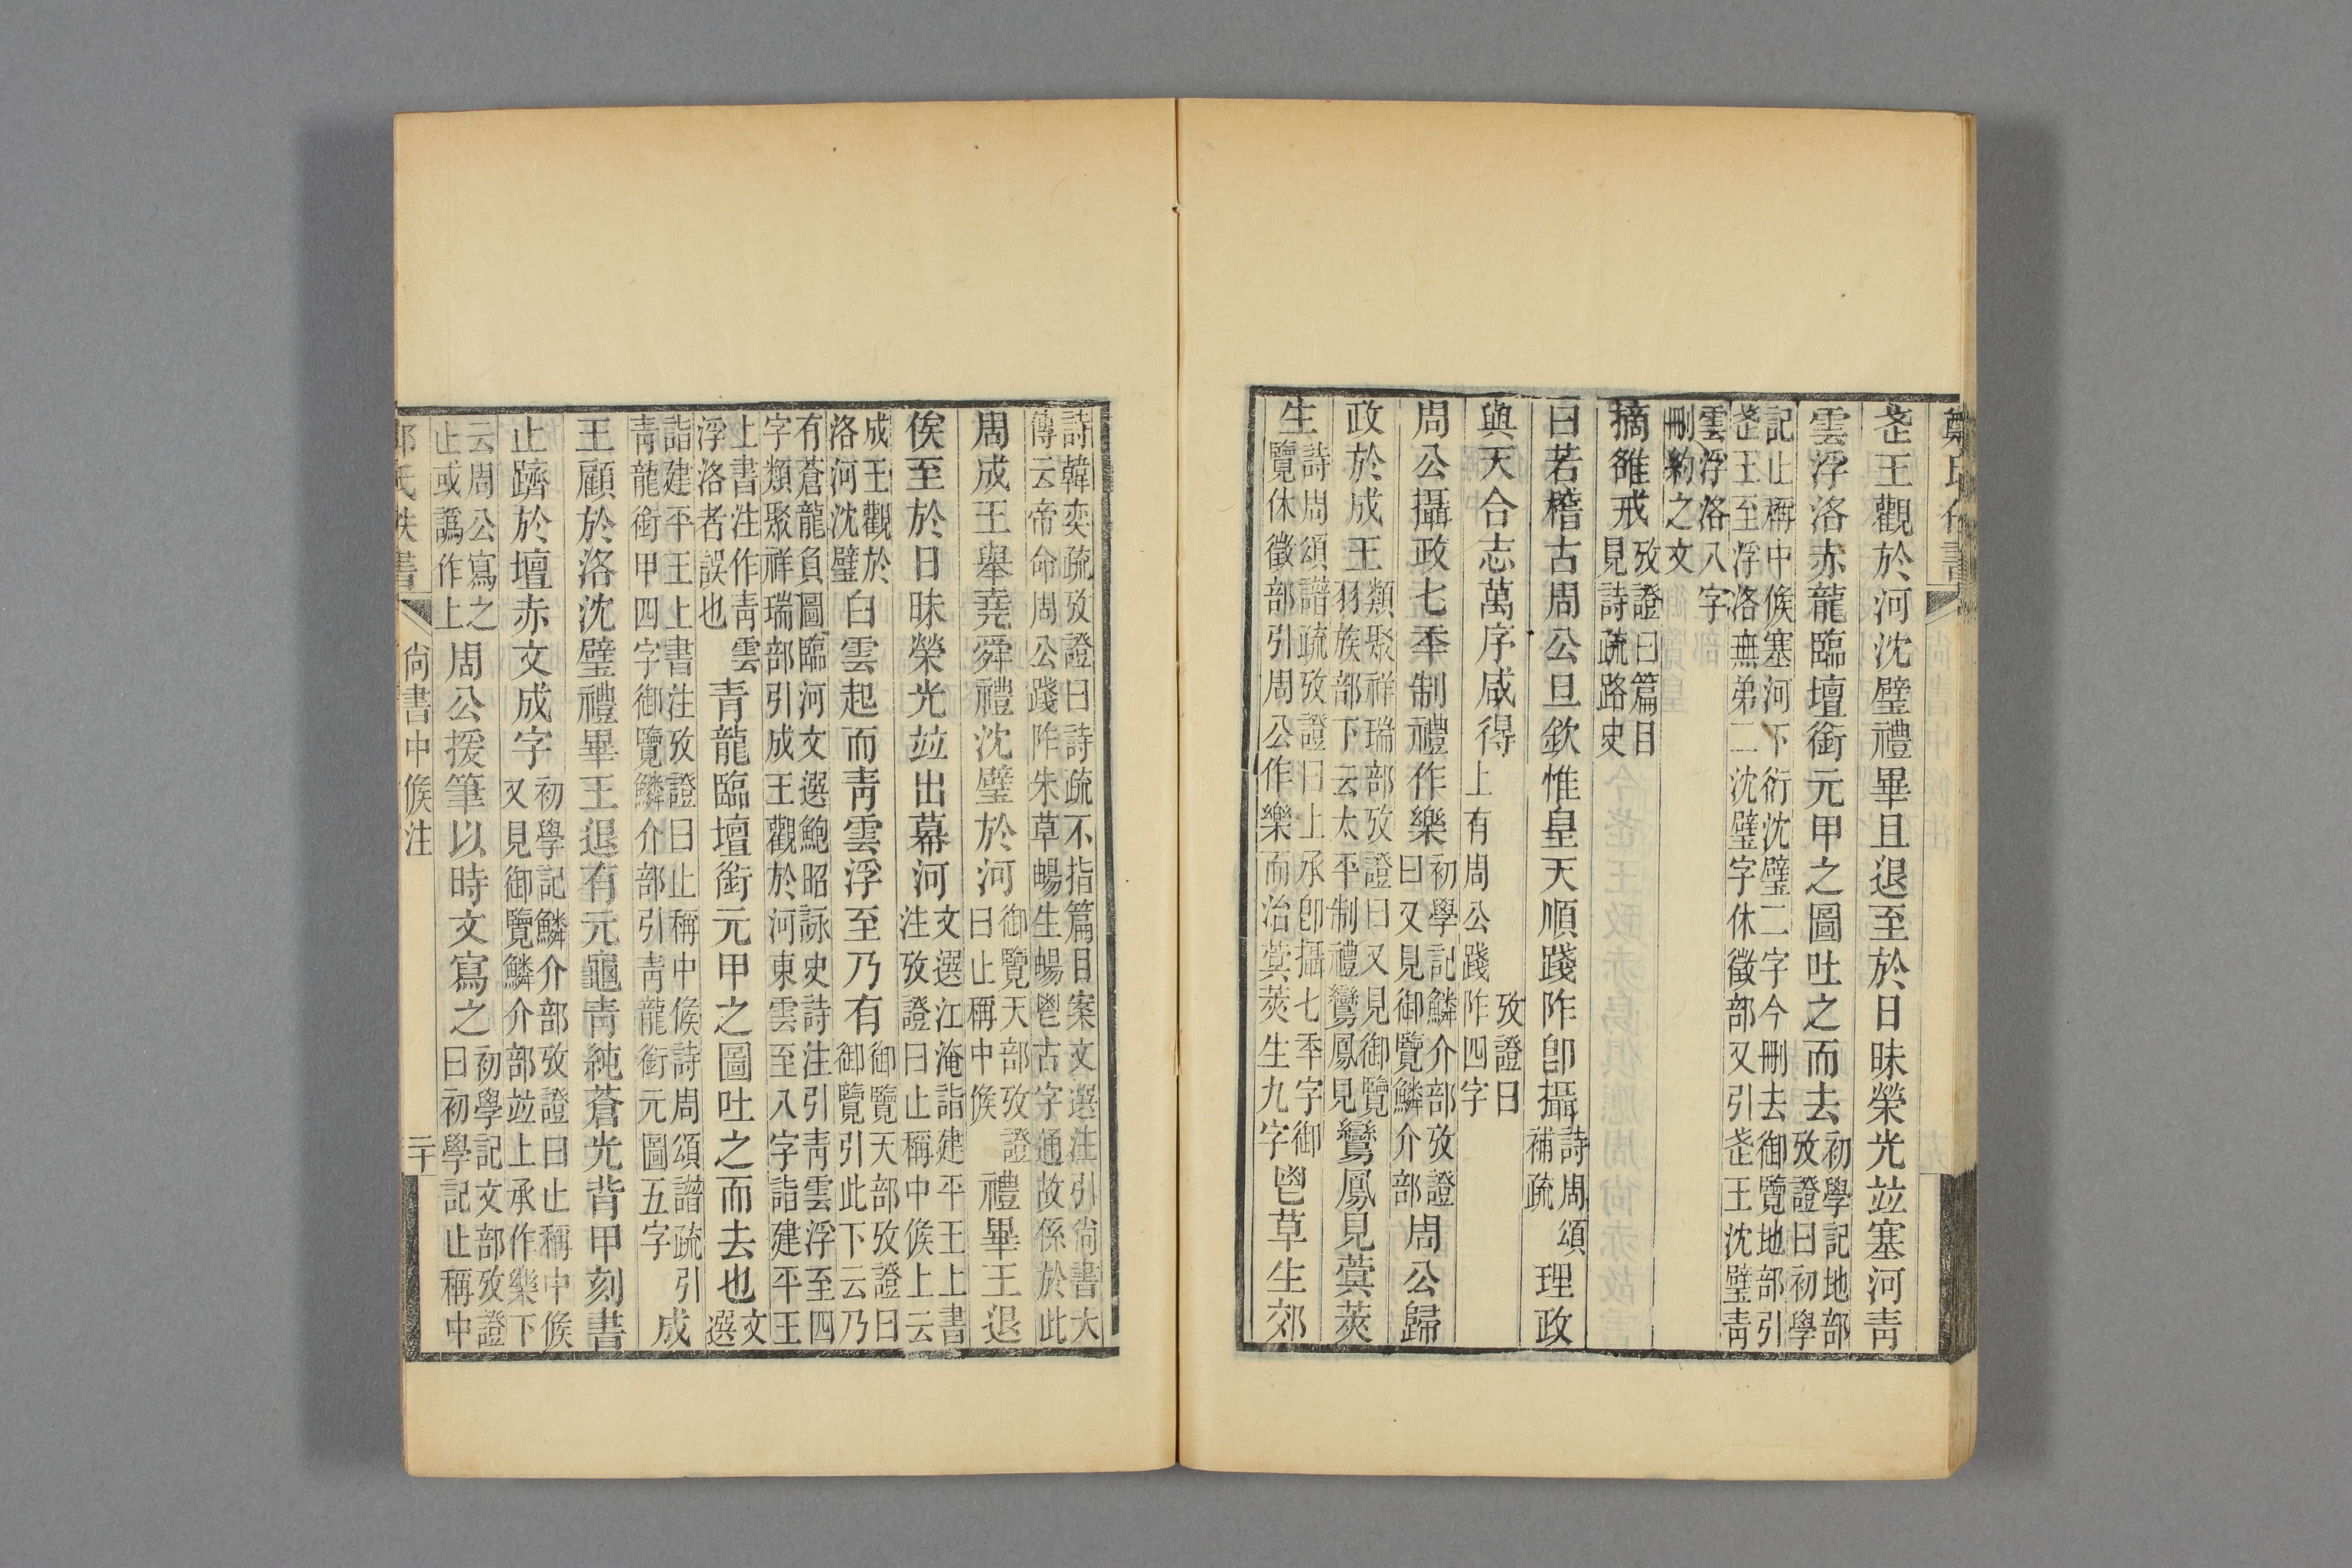 鄭氏佚書
𤯝王觀於河沈璧禮畢且退至於日昧榮光竝塞河靑
雲浮洛赤龍臨壇銜元甲之圖吐之而去初學記地部
攷證曰初學
記止稱中候塞河下衍沈璧二字今刪去御覽地部引
𤯝王至浮洛無弟二沈璧字休徵部又引𤯝王沈璧靑
雲浮洛八字
刪約之文
摘雒戒攷證曰篇目
見詩疏路史
曰若稽古周公旦欽惟皇天順踐阼卽攝詩周頌
補疏
理政
與天合志萬序咸得攷證曰
上有周公踐阼四字
周公攝政七秊制禮作樂初學記鱗介部攷證
曰又見御覽鱗介部
周公歸
政於成王類聚祥瑞部攷證曰又見御覽
羽族部下云太平制禮鸞鳳見
鸞鳳見蓂莢
生詩周頌譜疏攷證曰上承卽攝七秊字御
覽休徵部引周公作樂而治蓂莢生九字
鬯草生郊
詩韓奕疏攷證曰詩疏不指篇目案文選注引尙書大
傳云帝命周公踐阼朱草暢生暢鬯古字通故係於此
周成王舉堯舜禮沈璧於河御覽天部攷證
曰止稱中候
禮畢王退
俟至於日昧榮光竝出幕河文選江淹詣建平王上書
注攷證曰止稱中候上云
成王觀於
洛河沈璧
白雲起而靑雲浮至乃有御覽天部攷證曰
御覽引此下云乃
有蒼龍負圖臨河文選鮑昭詠史詩注引靑雲浮至四
字類聚祥瑞部引成王觀於河東雲至八字詣建平王
上書注作靑雲
浮洛者誤也
青龍臨壇銜元甲之圖吐之而去也文
選
詣建平王上書注攷證曰止稱中候詩周頌譜疏引
靑龍銜甲四字御覽鱗介部引靑龍銜元圖五字
成
王顧於洛沈璧禮畢王退有元龜靑純蒼光背甲刻書
止躋於壇赤文成字初學記鱗介部攷證曰止稱中候
又見御覽鱗介部竝上承作樂下
云周公寫之
止或譌作上
周公援筆以時文寫之初學記文部攷證
曰初學記止稱中
尙書中候注
二十